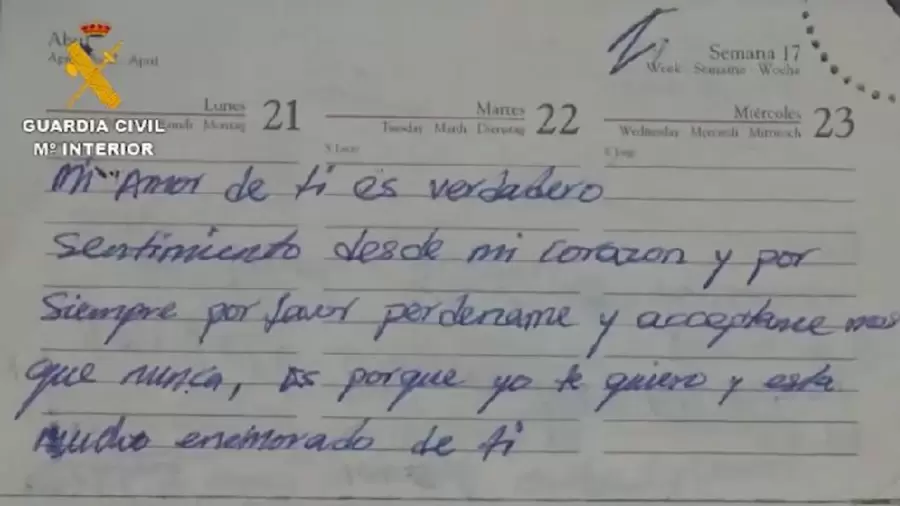 Abril
April
Semana 17
Week Semaine Woche
Lunes 21
Montag
Martes 22
Tuesday Mardi Dienstag
Miércoles 23
Wednesday Mercredi Mittwoch
GUARDIA CIVIL
Mº INTERIOR
Mi Amor de ti es verdadero
sentimiento desde mi corazon y por
siempre por favor perdename y acceptame mas
que nunca, es porque yo te quiero y esta
mucho enamorado de ti